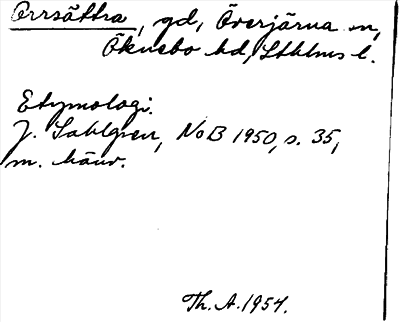 Orrsättra, gd, Överjärna sn,
Öknebo hd, Sthlms l.
Etymologi.
J. Sahlgren, NoB 1950, s. 35,
m. hänv.
Th. A. 1954.